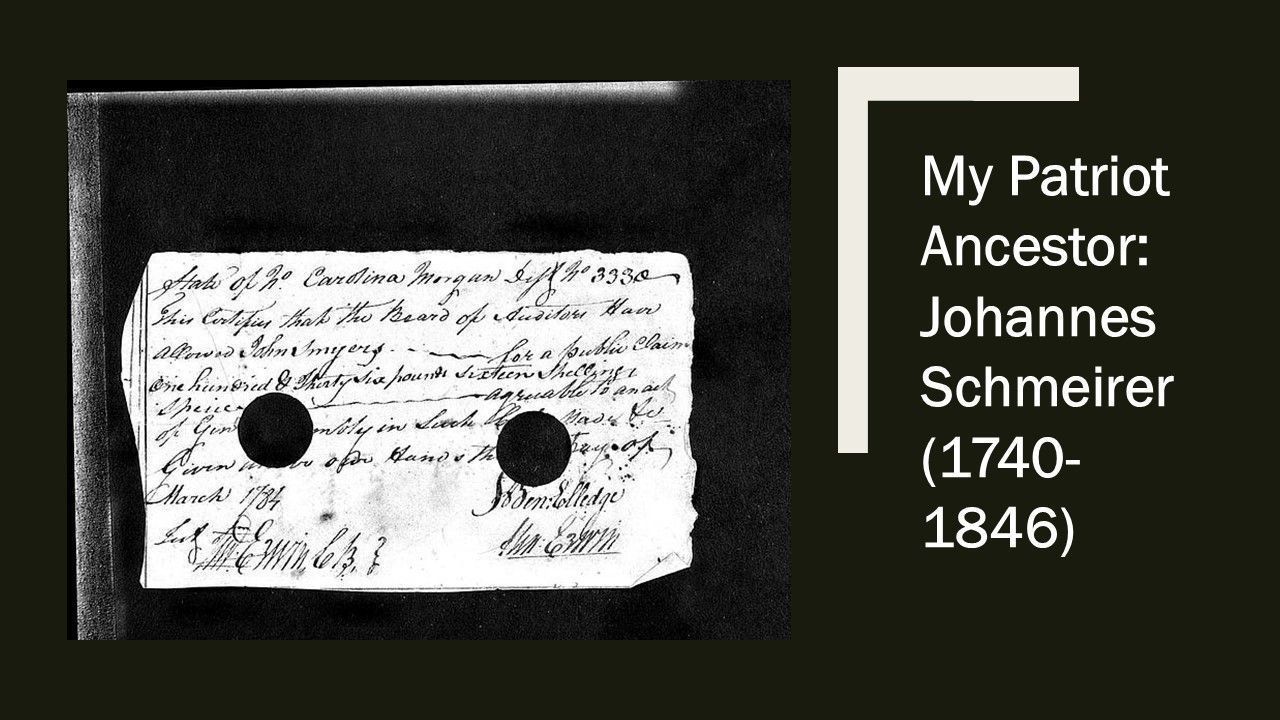 State of No Carolina Morgan Dist No 3330
This Certifies that the Board of Auditors Have
allowed John Smyers for a public Claim
One hundred & Thirty Six pounds Sixteen Shillings
Specie agreuable to an act
of Gen mbly in Such Made &c
Given under our Hands the Day of
March 1784
Jno Erwin Clk Ben: Elledge
Jno Erwin
My Patriot
Ancestor:
Johannes
Schmeirer
(1740-
1846)